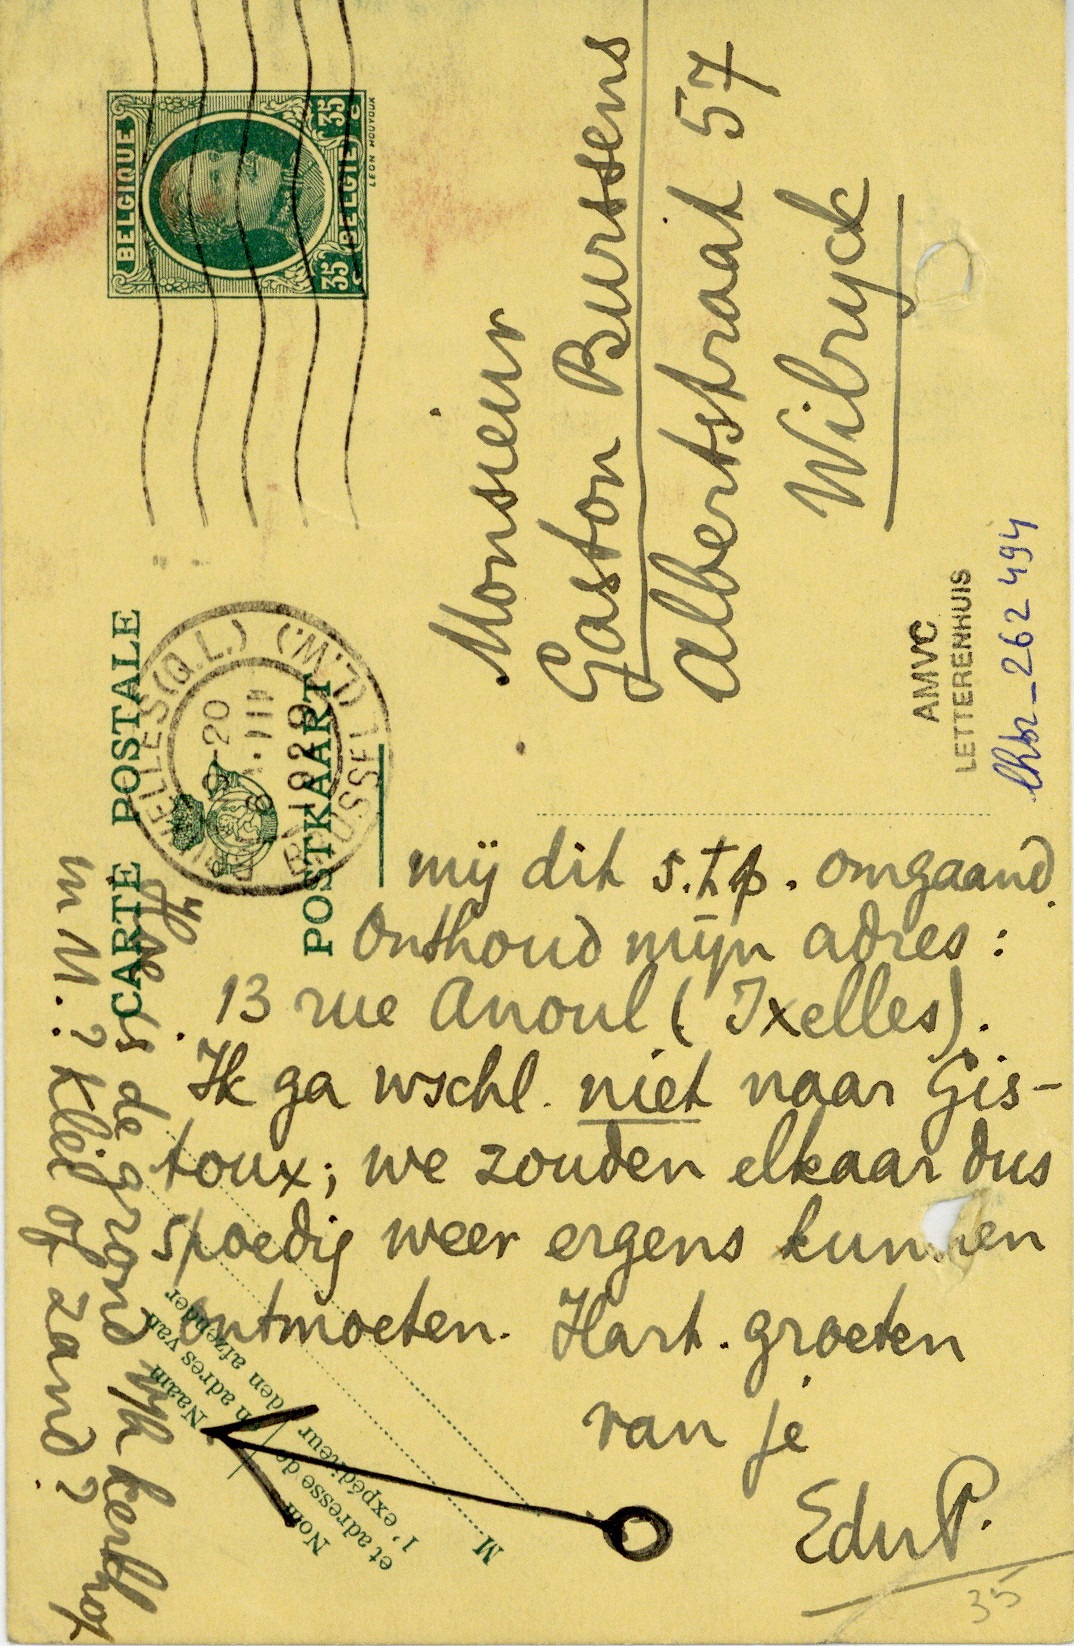 BELGIQUE
35 BELGIË 35
c c
LEON HOUYOUX
CARTE POSTALE
POSTKAART
(Q.L.) (L.W.)
-20
1929
Monsieur
Gaston Burssens
Albertstraat 57
Wilryck
AMVC
LETTERENHUIS
lhbr_262 494
mij dit s.t.p. omgaand.
Onthoud mijn adres:
13 rue Anoul (Ixelles).
Ik ga wschl. niet naar Gis-
toux; we zouden elkaar dus
spoedig weer ergens kunnen
ontmoeten. Hart. groeten
van je
EduP.
35
Hoe is de grond v/h kerkhof
in M.? Klei of zand?
Naam
en adres van
den afzender
Nom
et adresse de
l'expéditeur
M